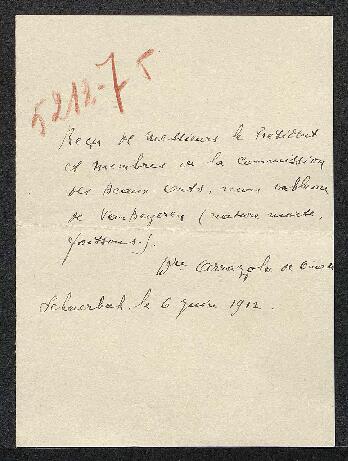 5212-75
Reçu de Messieurs le Président
et Membres de la Commission
des Beaux Arts, mon tableau
de Van Beyeren (nature morte,
poissons).
Arrazola de Oñate
le 6 juin 1912.